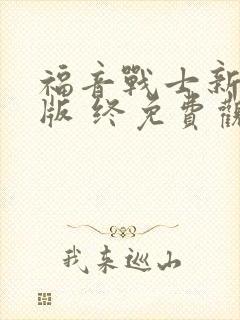 福音戰士新
版 终免費觀
我来巡山